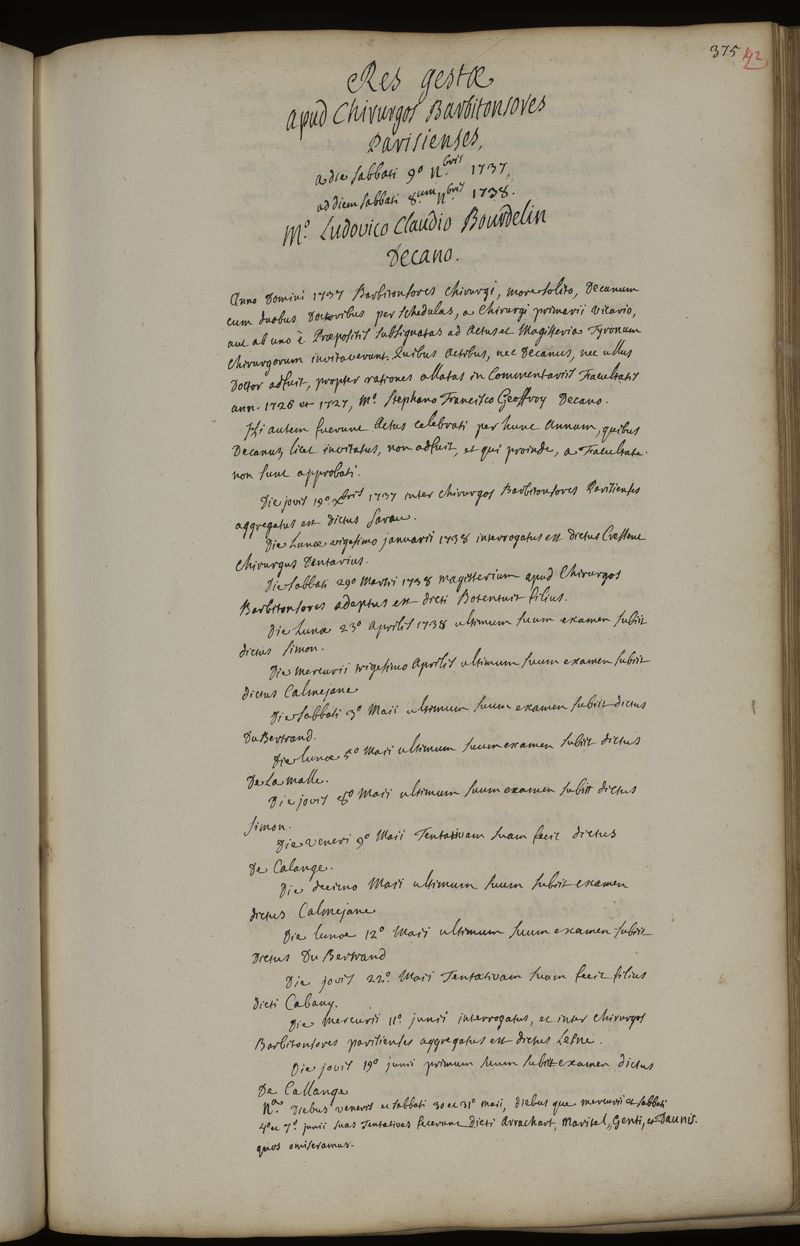 375 192
Res gestæ
apud Chirurgos Barbitonsores
Parisienses,
a die sabbati 9º 9.bris 1737,
ad diem sabbati 8.um 9.bris 1738.
M.º Ludovico Claudio Bourdelin
Decano.
Anno Domini 1737 Barbitonsores chirurgi, more solito, Decanum
cum duobus Doctoribus per schedulas, a Chirurgi primarii vicario,
aut ab uno è Præpositis subsignatas ad Actus et Magisteria Tyronum
chirurgorum invitaverunt. Quibus Actibus, nec Decanus, nec ullus
Doctor adfuit, propter rationes allatas in Commentariis Facultatis
ann. 1726 et 1727, M.º Stephano Francisco Geoffroy Decano.
Hi autem fuerunt Actus celebrati per hunc Annum, quibus
Decanus, licet invitatus, non adfuit, et qui proinde, a Facultate
non sunt approbati.
Die jovis 19º xbris 1737 inter chirurgos Barbitonsores Parisienses
aggregatus est dictus
Die Lunæ vigesimo januarii 1738 interrogatus est dictus
chirurgus Dentarius.
Die sabbati 29º Martii 1738 magisterium apud Chirurgos
Barbitonsores adeptus est dicti Botentuit filius.
Die Lunæ 23º Aprilis 1738 ultimum suum examen subiit
dictus Simon.
Die mercurii trigesimo Aprilis ultimum suum examen subiit
dictus Calmejane
Die sabbati 3º Maii ultimum suum examen subiit dictus
Du Bertrand.
Die lunæ 5º Maii ultimum suum examen subiit dictus
De La Malle.
Die jovis 8º Maii ultimum suum examen subiit dictus
Simon.
Die veneri 9º Maii Tentativam suam fecit dictus
De Calange.
Die decimo Maii ultimum suum subiit examen
dictus Calmejane
Die lunæ 12º Maii ultimum suum examen subiit
Dictus Du Bertrand
Die jovis 22º. Maii Tentativam suam fecit filius
dicti Cabany.
Die Mercurii 11º. junii interrogatus, et inter chirurgos
Barbitonsores parisienses aggregatus est dictus Lesne.
Die jovis 19º junii primum suum subiit examen dictus
De Callange
N.ª Diebus veneris et sabbati 30 et 31º maii, diebus que mercurii et sabbati
4º et 7º. junii suas Tentativas fecerunt dicti Arrachart, Maritel, Genti, et Daunis.
quos omiseramus.